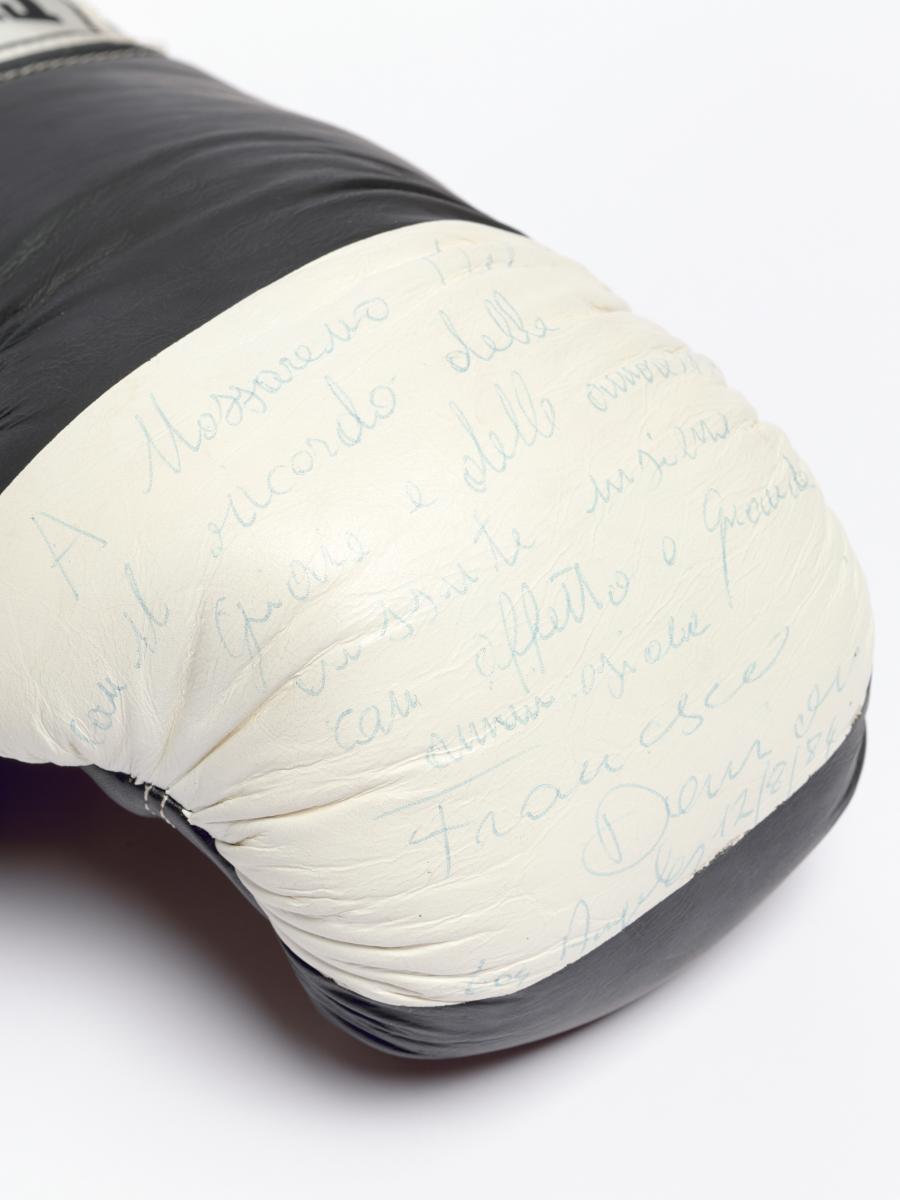 A Mossareno
con il ricordo delle
guerre e delle
vissute insieme
con affetto e grande
ammirazione
Francesco
Damiani
Los Angeles 12/8/84